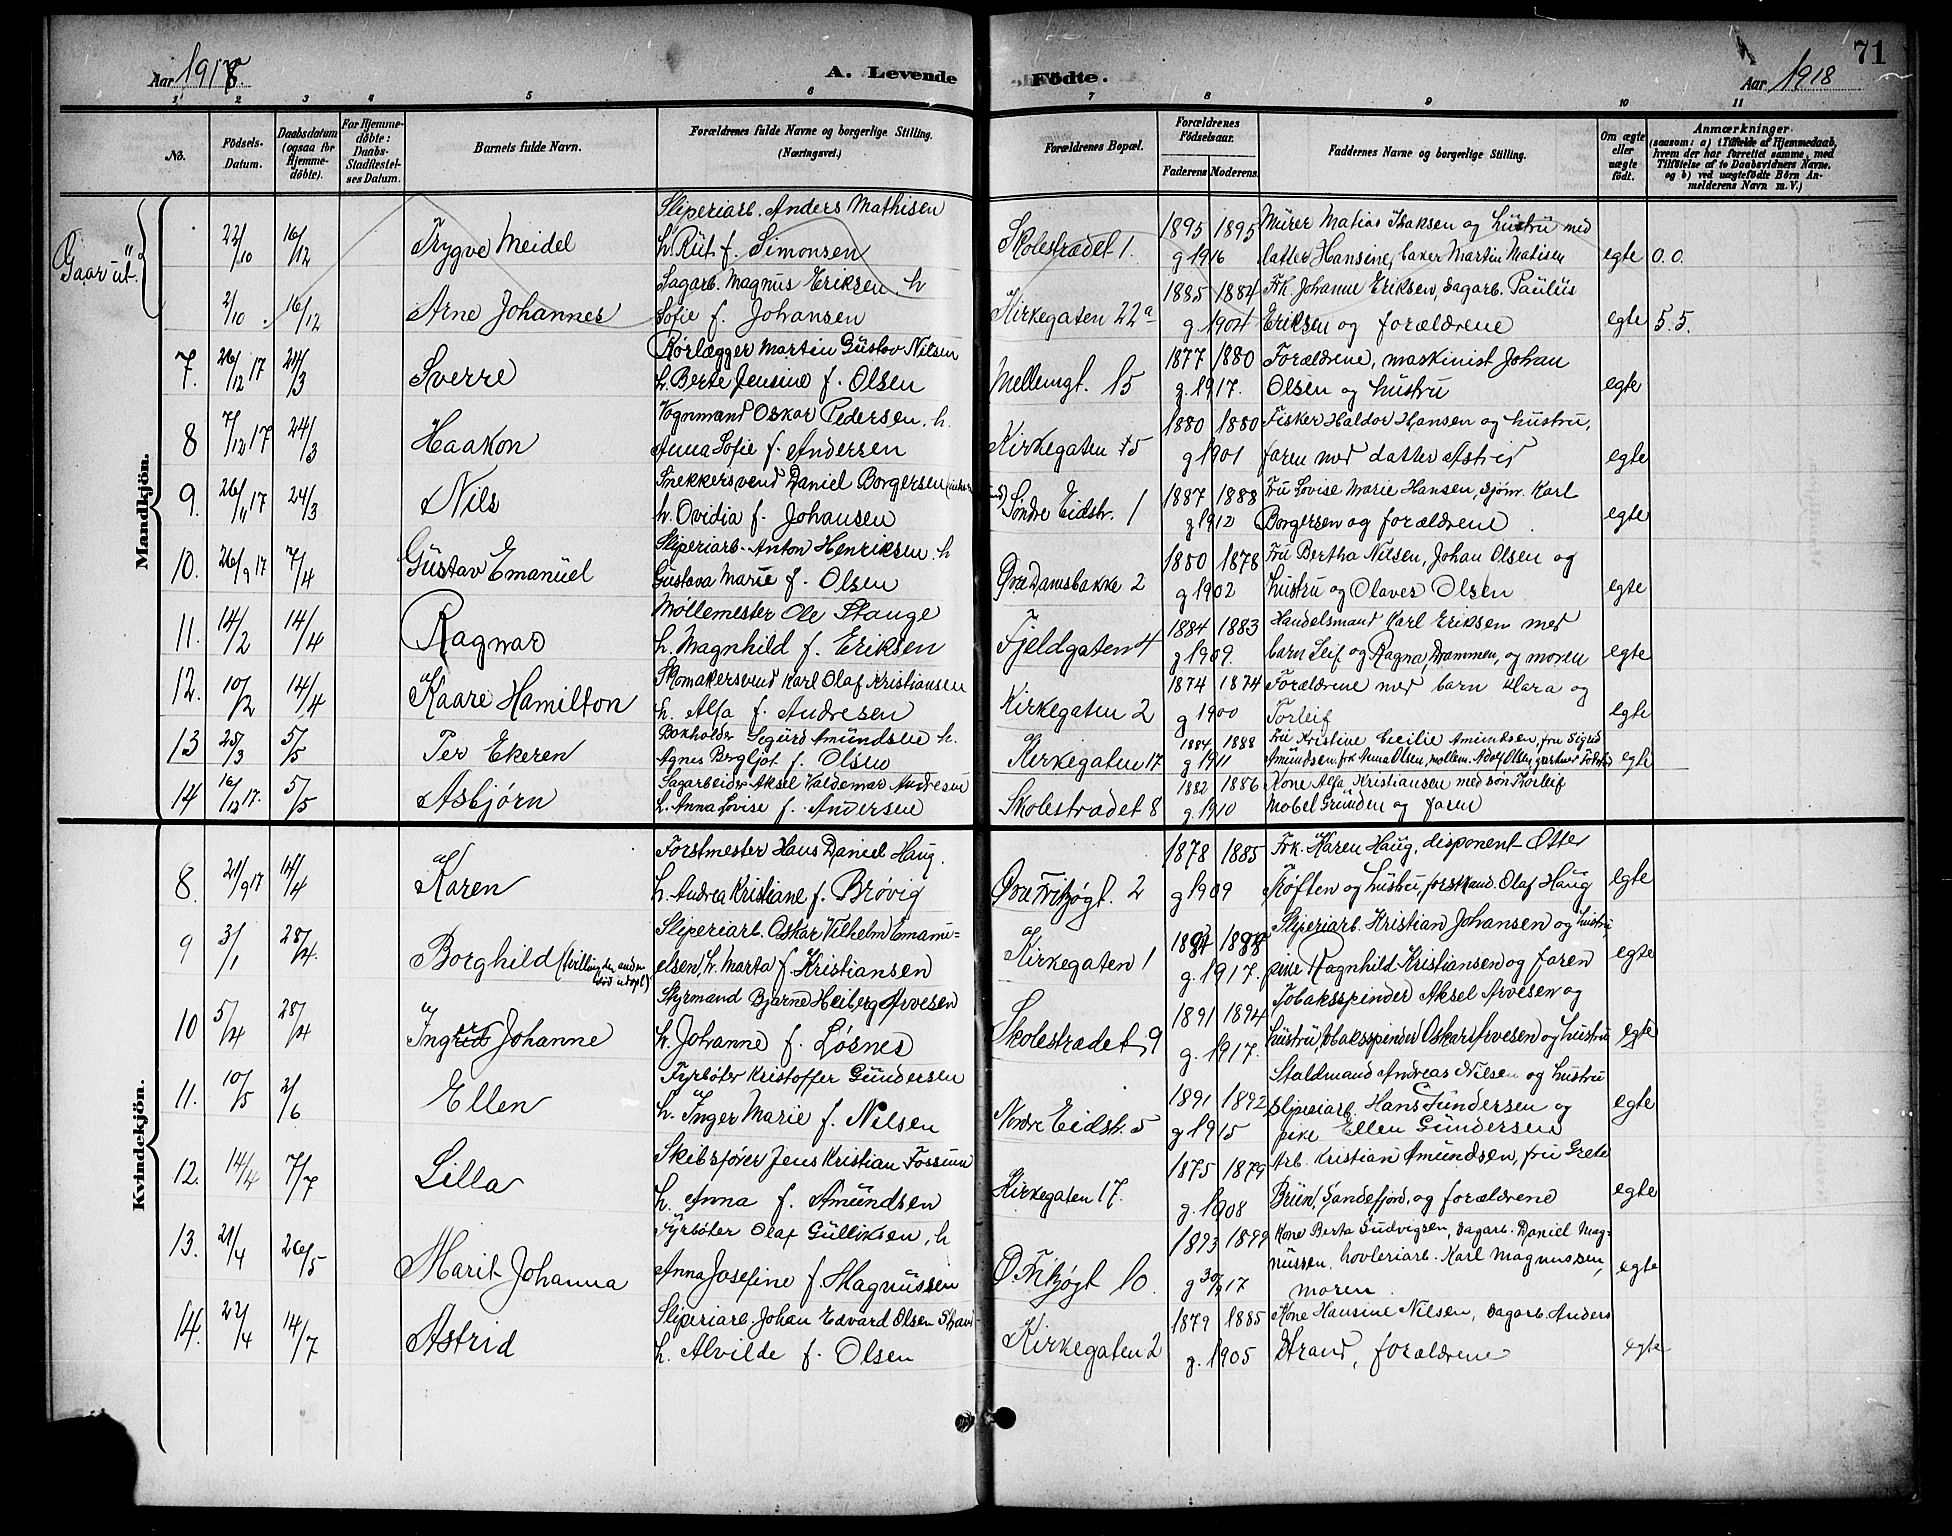 71
Aar 1918.
A. Levende Födte.
Aar 1918
1 2 3 4 5 6 7 8 9 10 11
No.
Födsels-Datum.
Daabsdatum (ogsaa for Hjemmedöbte).
For Hjemmedöbte: Daabs-Stadfæstelses Datum.
Barnets fulde Navn.
Forældrenes fulde Navne og borgerlige Stilling. (Næringsvei.)
Forældrenes Bopæl.
Forældrenes Födselsaar.
Faderens Moderens
Faddernes Navne og borgerlige Stilling.
Om ægte eller uægte födt.
Anmærkninger
(saasom: a) i Tilfælde af Hjemmedaab, hvem der har forrettet samme, med Tilföielse af to Daabsvidners Navne, og b) ved uægtefödte Börn Anmelderens Navn m. V.)
Gaar ut.
Mandkjön.
22/10 16/12 Trygve Meidel
Sliperiarb. Anders Mathisen
h. Rut f. Simonsen
Skolestrædet 1. 1895 1895 g 1916
Murer Matias Isaksen og hustru med
datter Hansine, baker Martin Matisen
egte 0.0.
2/10 16/12 Arne Johannes
Sagarb. Magnus Eriksen, h
Sofie f. Johansen
Kirkegaten 22a 1885 1884 g. 1904
Frk. Johanne Eriksen, sagarb. Paulus
Eriksen og forældrene
egte 5.5.
7. 26/12 17 24/3 Sverre
Rørlægger Martin Gustav Nilsen
h. Berte Jensine f. Olsen
Mellemgt. 15 1877 1880 g. 1917.
Forældrene, maskinist Johan
Olsen og hustru
egte
8 7/12 17 24/3 Haakon
Vognmand Oskar Pedersen, h.
Anna Sofie f. Andersen
Kirkegaten 45 1880 1880 g 1901
Fisker Haldor Hansen og hustru,
faren med datter Astrid
egte
9. 26/11 17 24/3 Nils
Snekkersvend Daniel Borgersen
h. Ovidia f. Johansen
Søndre Eidstr. 1 1887 1888 g 1912
Fru Lovise Marie Hansen, sjøm. Karl
Borgersen og forældrene
egte
10. 26/9 17 7/4 Gustav Emanuel
Sliperiarb. Anton Henriksen. h
Gustava Marie f. Olsen
Øvre Damsbakke 2 1880 1878 g 1902
Fru Bertha Nilsen, Johan Olsen og
hustru og Olaves Olsen
egte
11. 14/2 14/4 Ragnar
Møllemester Ole Stange
h. Magnhild f. Eriksen
Fjeldgaten 4 1884 1883 g 1909.
Handelsmand Karl Eriksen med
barn Leif og Ragna, Drammen, og moren
egte
12. 10/2 14/4 Kaare Hamilton
Skomakersvend Karl Olaf Kristiansen
h. Alfa f. Andresen
Kirkegaten 2 1874 1874 g 1900
Forældrene med barn Klara og
Torleif
egte
13 25/3 5/5 Per Ekeren
Bokholder Sigurd Amundsen h.
Agnes Bergljot f. Olsen
Kirkegaten 17 1884 1888 g 1911
Fru Kristine Cecilie Amundsen, fru Sigrid
Amundsen, frk Anna Olsen, mollem. Adolf Olsen, gartner
egte
14 16/12 17. 5/5 Asbjørn
Sagarbeider Aksel Valdemar Andresen
h. Anna Lovise f. Andersen
Skolestrædet 8 1882 1886 g. 1910
Kone Alfa Kristiansen med søn Thorleif
Mobel Grunden og faren
Kvindekjön.
8 21/9 17 14/4 Karen
Forstmester Hans Daniel Haug.
h. Andrea Kristiane f. Brøvig
Øvre Fritzøgt. 2 1878 1885 g 1909
Frk. Karen Haug, disponent Otter
Røften og hustru, forstkand. Olaf Haug
egte
9 3/1 28/4. Borghild (tvilling den anden død udøpt)
Sliperiarb. Oskar Vilhelm Emanu-
elsen, h. Marta f. Kristiansen
Kirkegaten 1 g. 1917.
Sliperiarb. Kristian Johansen og hustru,
pike Ragnhild Kristiansen og faren
egte
10 5/4 28/4 Inger Johanne
Styrmand Bjarne Heiberg Arvesen
h. Johanne f. Løsnes
Skolestrædet 9 1891 1894 g. 1917.
Tobaksspinder Aksel Arvesen og
hustru, tobaksspinder Oskar Arvesen og hustru
egte
11. 10/5 2/6 Ellen
Fyrbøter Kristoffer Gundersen
h. Inger Marie f. Nilsen
Nordre Eidstr. 5 1891 1892 g 1915
Staldmand Andreas Nilsen og hustru
sliperiarb. Hans Gundersen og
pike Ellen Gundersen
egte
12. 14/4 7/7 Lilla
Skibsfører Jens Kristian Fossum
h. Anna f. Amundsen
Kirkegaten 17. 1875 1879 g. 1908
Arb. Kristian Amundsen, fru Grete
Bruun, Sandefjord, og forældrene
egte
13. 21/4 26/5 Marit Johanna
Fyrbøter Olaf Gulliksen, h
Anna Josefine f. Magnussen
Ø. Fritzøgt 10. 1893 1899 g 30/9 17
Kone Berta Ludvigsen, sagarb. Daniel Mag-
nussen, hovleriarb. Karl Magnussen,
moren.
egte
14. 22/4 14/7 Astrid
Sliperiarb. Johan Edvard Olsen Strand
h. Alvilde f. Olsen
Kirkegaten 2 1879 1885 g. 1905
Kone Hansine Nilsen, sagarb. Anders
Strand, forældrene
egte